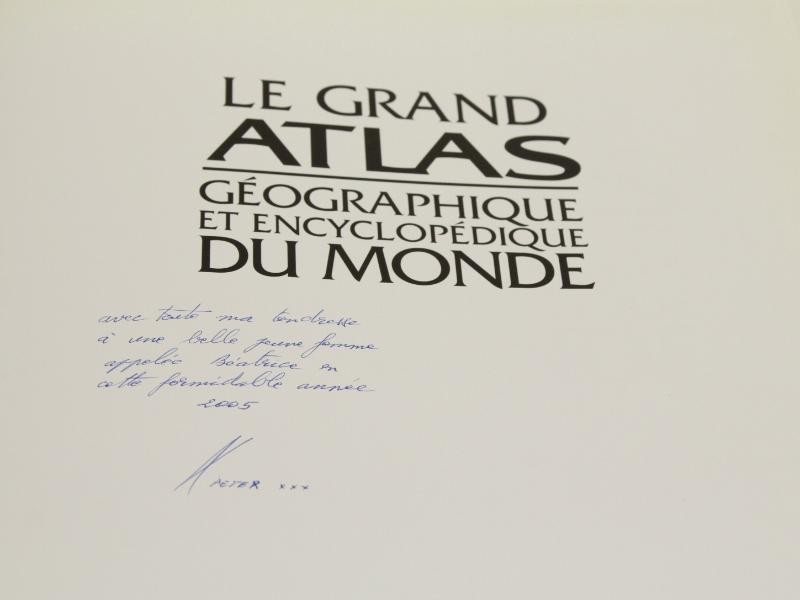 LE GRAND
ATLAS
GÉOGRAPHIQUE
ET ENCYCLOPÉDIQUE
DU MONDE
avec toute ma tendresse
à une belle jeune femme
appelée Béatrice en
cette formidable année
2005
PETER xxx